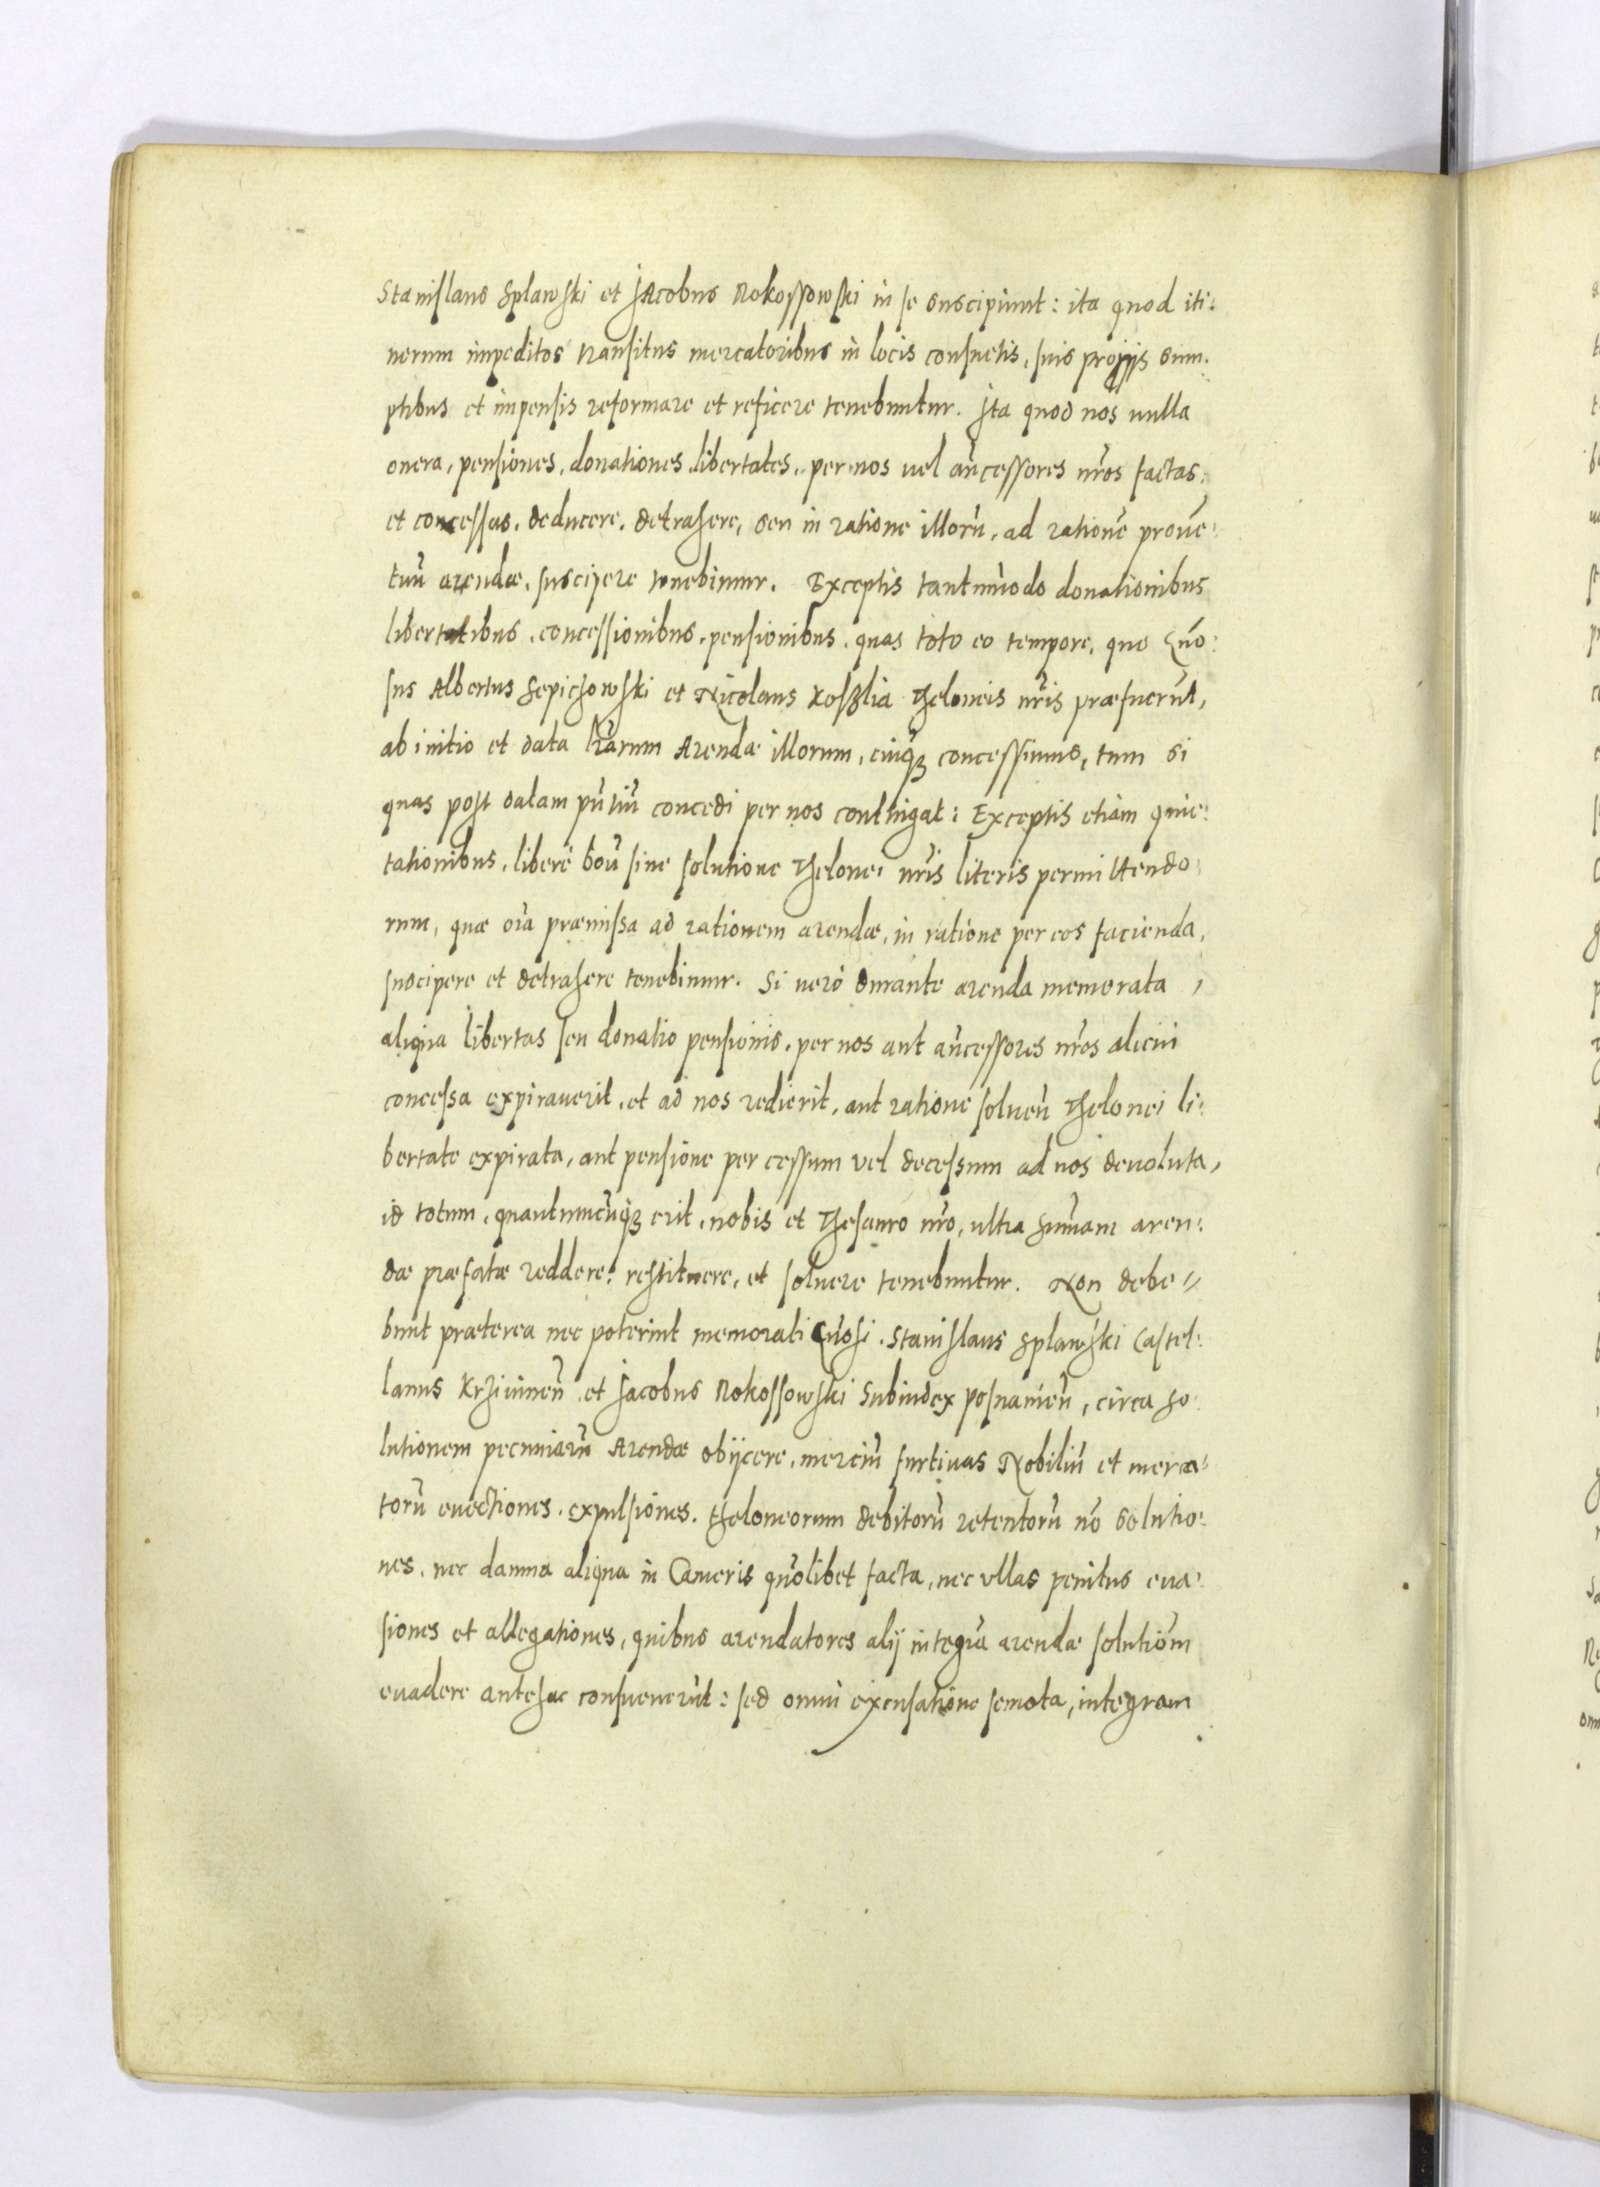 Stanislaus Splawski et Jacobus Rokossowski in se suscipiunt: ita quod iti:
nerum impeditos transitus mercatoribus in locis consuetis, suis proprijs sum.
ptibus et impensis reformare et reficere tenebuntur. Ita quod nos nulla
onera, pensiones, donationes, libertates, per nos uel añcessores nr̃os factas:
et concessas, deducere, detrahere, seu in ratione illorũ, ad rationẽ prouẽ:
tuũ arendæ, suscipere tenebimur. Exceptis tantum̃odo donationibus
libertatibus, concessionibus, pensionibus, quas toto eo tempore, quo Gño:
sus Albertus Sepichowski et Nicolaus Koszlia Theloneis nr̃is præfuerũt,
ab initio et data lr̃arum Arendæ illorum, cuiq̃ꝫ concessimus, tum si
quas post datam pñtiũ concedi per nos contingat: Exceptis etiam quie:
tationibus, liberè boũ sine solutione Thelonei nr̃is literis permittendo
rum, quæ oĩa præmissa ad rationem arendæ, in ratione per eos facienda,
suscipere et detrahere tenebimur. Si uerò durante arenda memorata,
aliqua libertas seu donatio pensionis, per nos aut añcessores nr̃os alicui
concessa expirauerit, et ad nos redierit, aut ratione soluen̄ Thelonei li:
bertate expirata, aut pensione per cessum vel decessum ad nos deuoluta,
id totum, quantumcũq̃ꝫ erit, nobis et Thesauro nr̃o, ultra sum̃am aren:
dæ præfatæ reddere, restituere, et soluere tenebuntur. Non debe//
bunt præterea nec poterint memorati Gñosi. Stanislaus Splawski Castel:
lanus Krziuinen̄ et Jacobus Rokossowski Subiudex posnanien̄, circa so:
lutionem pecuniarũ Arendæ obijcere, merciũ furtiuas Nobiliũ et merca:
torũ euectiones, expulsiones, theloneorum debitorũ retentorũ nõ solutio:
nes, nec damna aliqua in Cameris quõlibet facta, nec vllas penitus eua:
siones et allegationes, quibus arendatores alij integra arendæ solutiõm
euadere antehac consueuerũt: sed omni excusatione semota, integram